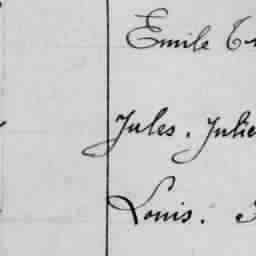 Emile
Jules. Julie
Louis.